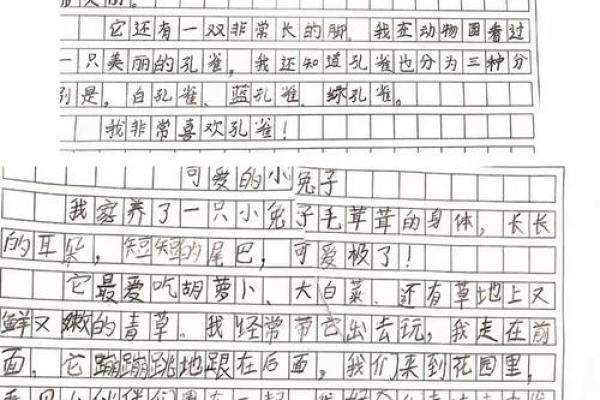 它还有一双非常长的脚。我在动物园看过
一只美丽的孔雀，我还知道孔雀也分为三种分
别是，白孔雀、蓝孔雀、绿孔雀。
我非常喜欢孔雀！
可爱的小兔子
我家养了一只小兔子毛茸茸的身体，长长
的耳朵，短短的尾巴，可爱极了！
它最爱吃胡萝卜、大白菜、还有草地上又
鲜又嫩的青草。我经常带它出去玩，我走在前
面，它蹦蹦跳跳地跟在后面，我们来到花园里，